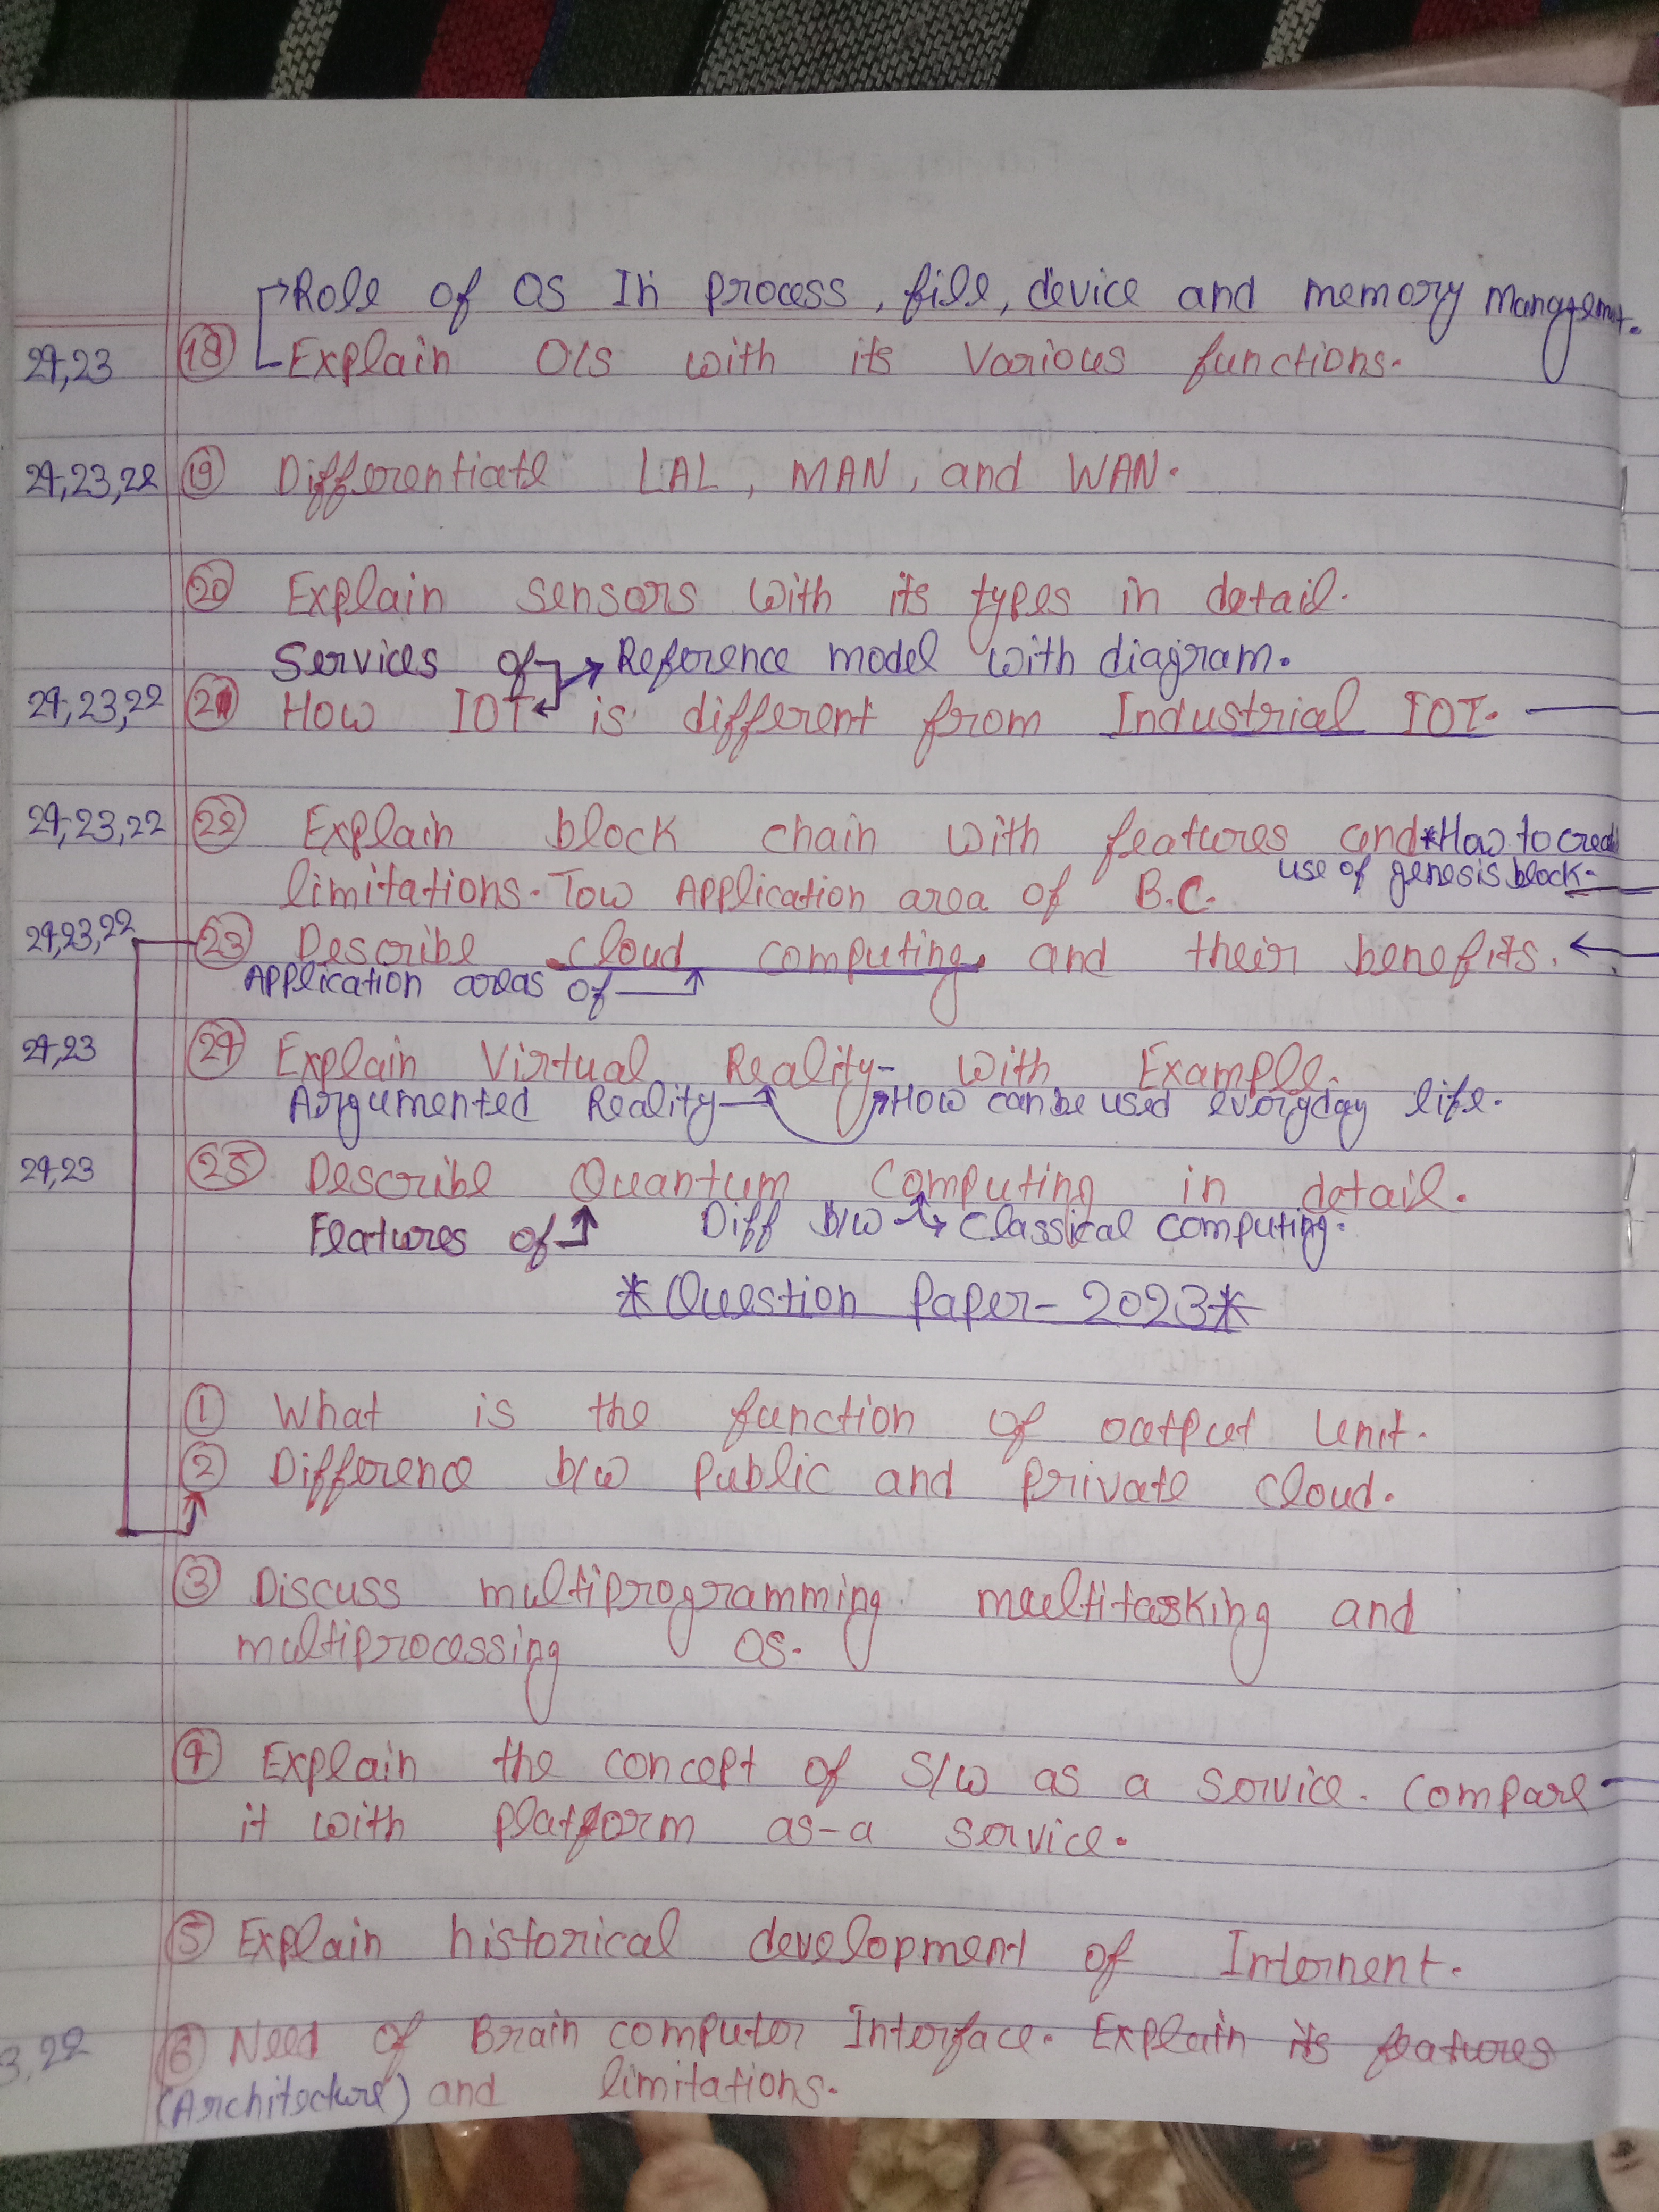 Role of OS In process, file, device and memory Management.
24,23 18 Explain O/S with its various functions.
24,23,22 19 Differentiate LAL, MAN, and WAN.
20 Explain sensors with its types in detail.
Services of Reference model with diagram.
24,23,22 21 How IOT is different from Industrial IOT.
24,23,22 22 Explain block chain with features and *How to creat
use of genesis block
limitations. Tow Application area of B.C.
24,23,22 23 Describe cloud computing and their benefits.
Application areas of
24,23 24 Explain Virtual Reality with Example.
Argumented Reality How can be used everyday life.
24,23 25 Describe Quantum Computing in detail.
Features of Diff b/w Classical computing.
*Question Paper-2023*
1 What is the function of output unit.
2 Difference b/w Public and Private cloud.
3 Discuss multiprogramming multitasking and
multiprocessing OS.
4 Explain the concept of S/w as a service. Compare
it with platform as-a service.
5 Explain historical development of Internent.
3,22 6 Need of Brain computer Interface. Explain its features
(Architecture) and limitations.